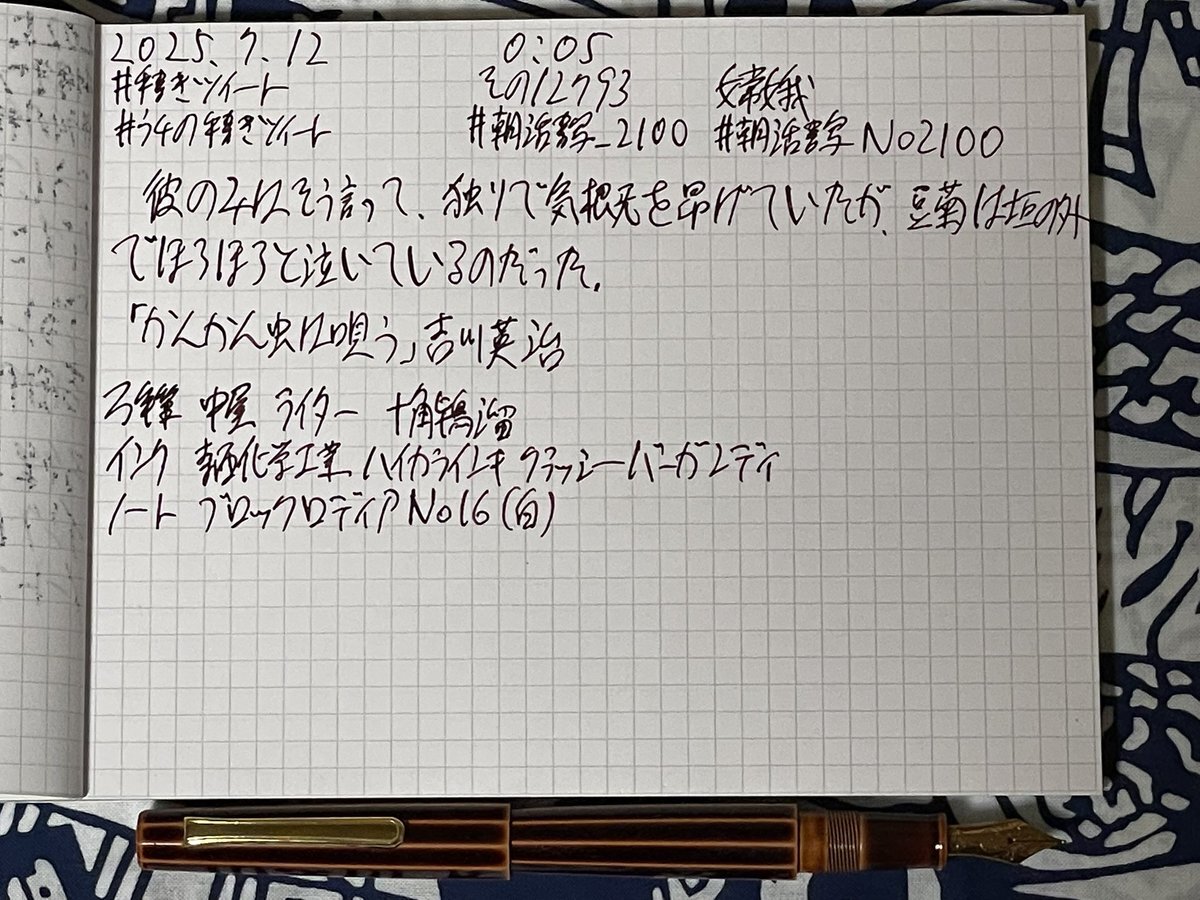 2025.7.12 0:05
#手書きツイート その12793 嫦娥
#うちの手書きツイート #朝活書写_2100 #朝活書写No2100
彼のみはそう言って、独りで気根先を昂げていたが、豆菊は垣の外
でほろほろと泣いているのだった。
「かんかん虫は唄う」吉川英治
万年筆 中屋 ライター 十角 溜
インク 化学工業 ハイカラインキ クラッシーバーガンディ
ノート ブロックロディアNo16(白)